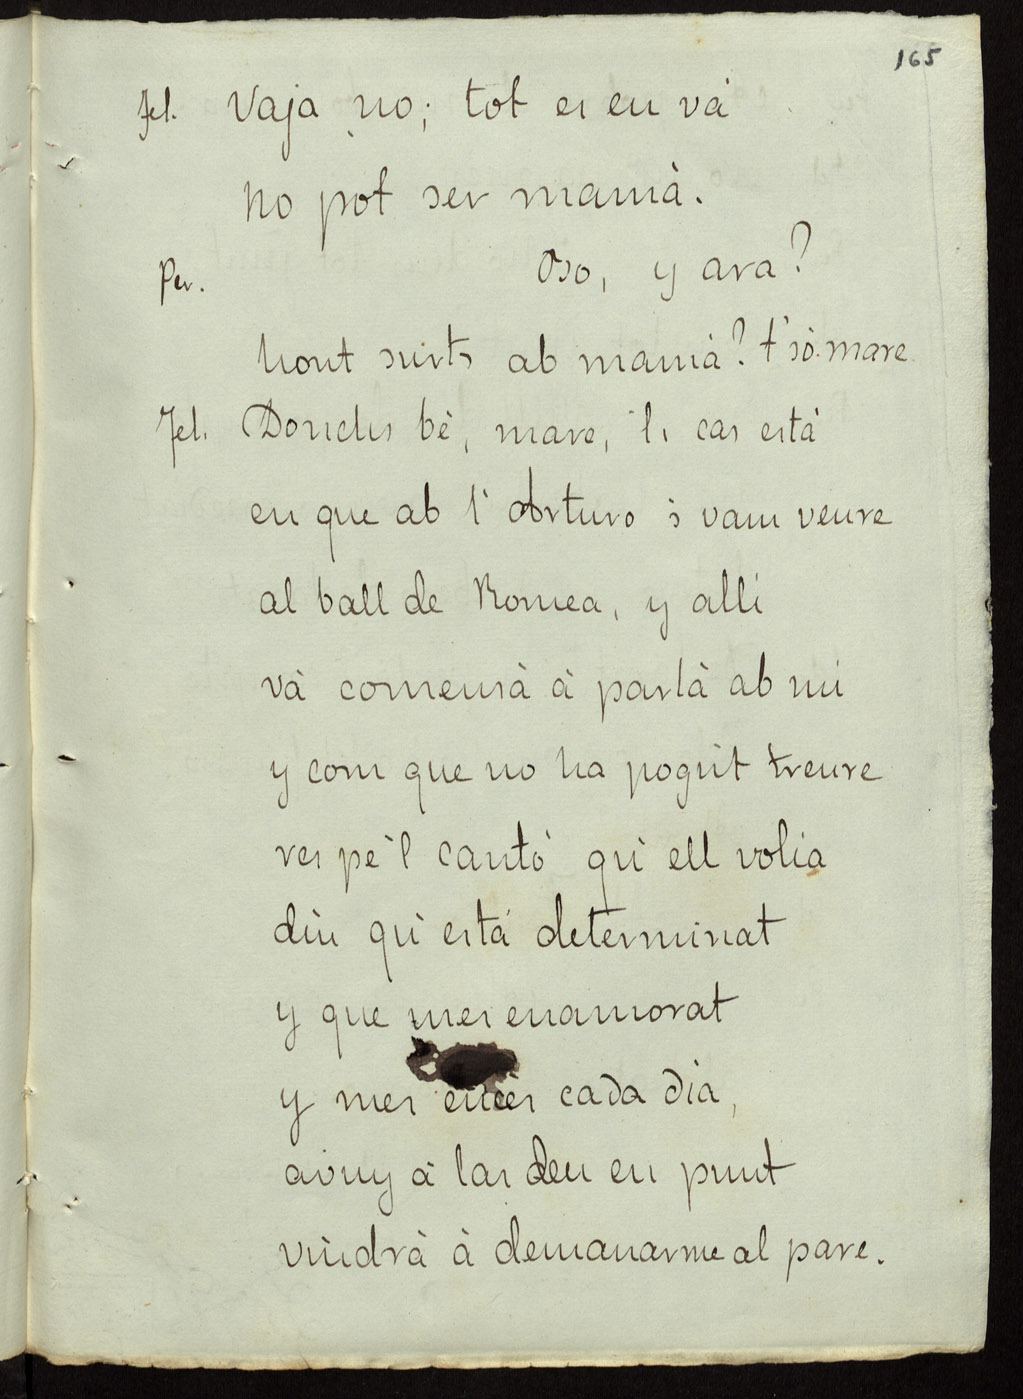 165
Jel. Vaja no; tot es en vá
no pot ser mamà.
Per. Oso, y ara?
hont surts ab mamà? t'sò mare
Jel. Donchs bè, mare, l' cas está
en que ab l' Arturo 's vam veure
al ball de Romea, y allí
và comensà à parlà ab mi
y com que no ha pogut treure
res pe'l cantó qu' ell volia
diu qu' está determinat
y que mes enamorat
y mes encés cada dia,
avuy à las deu en punt
vindrà à demanarme al pare.